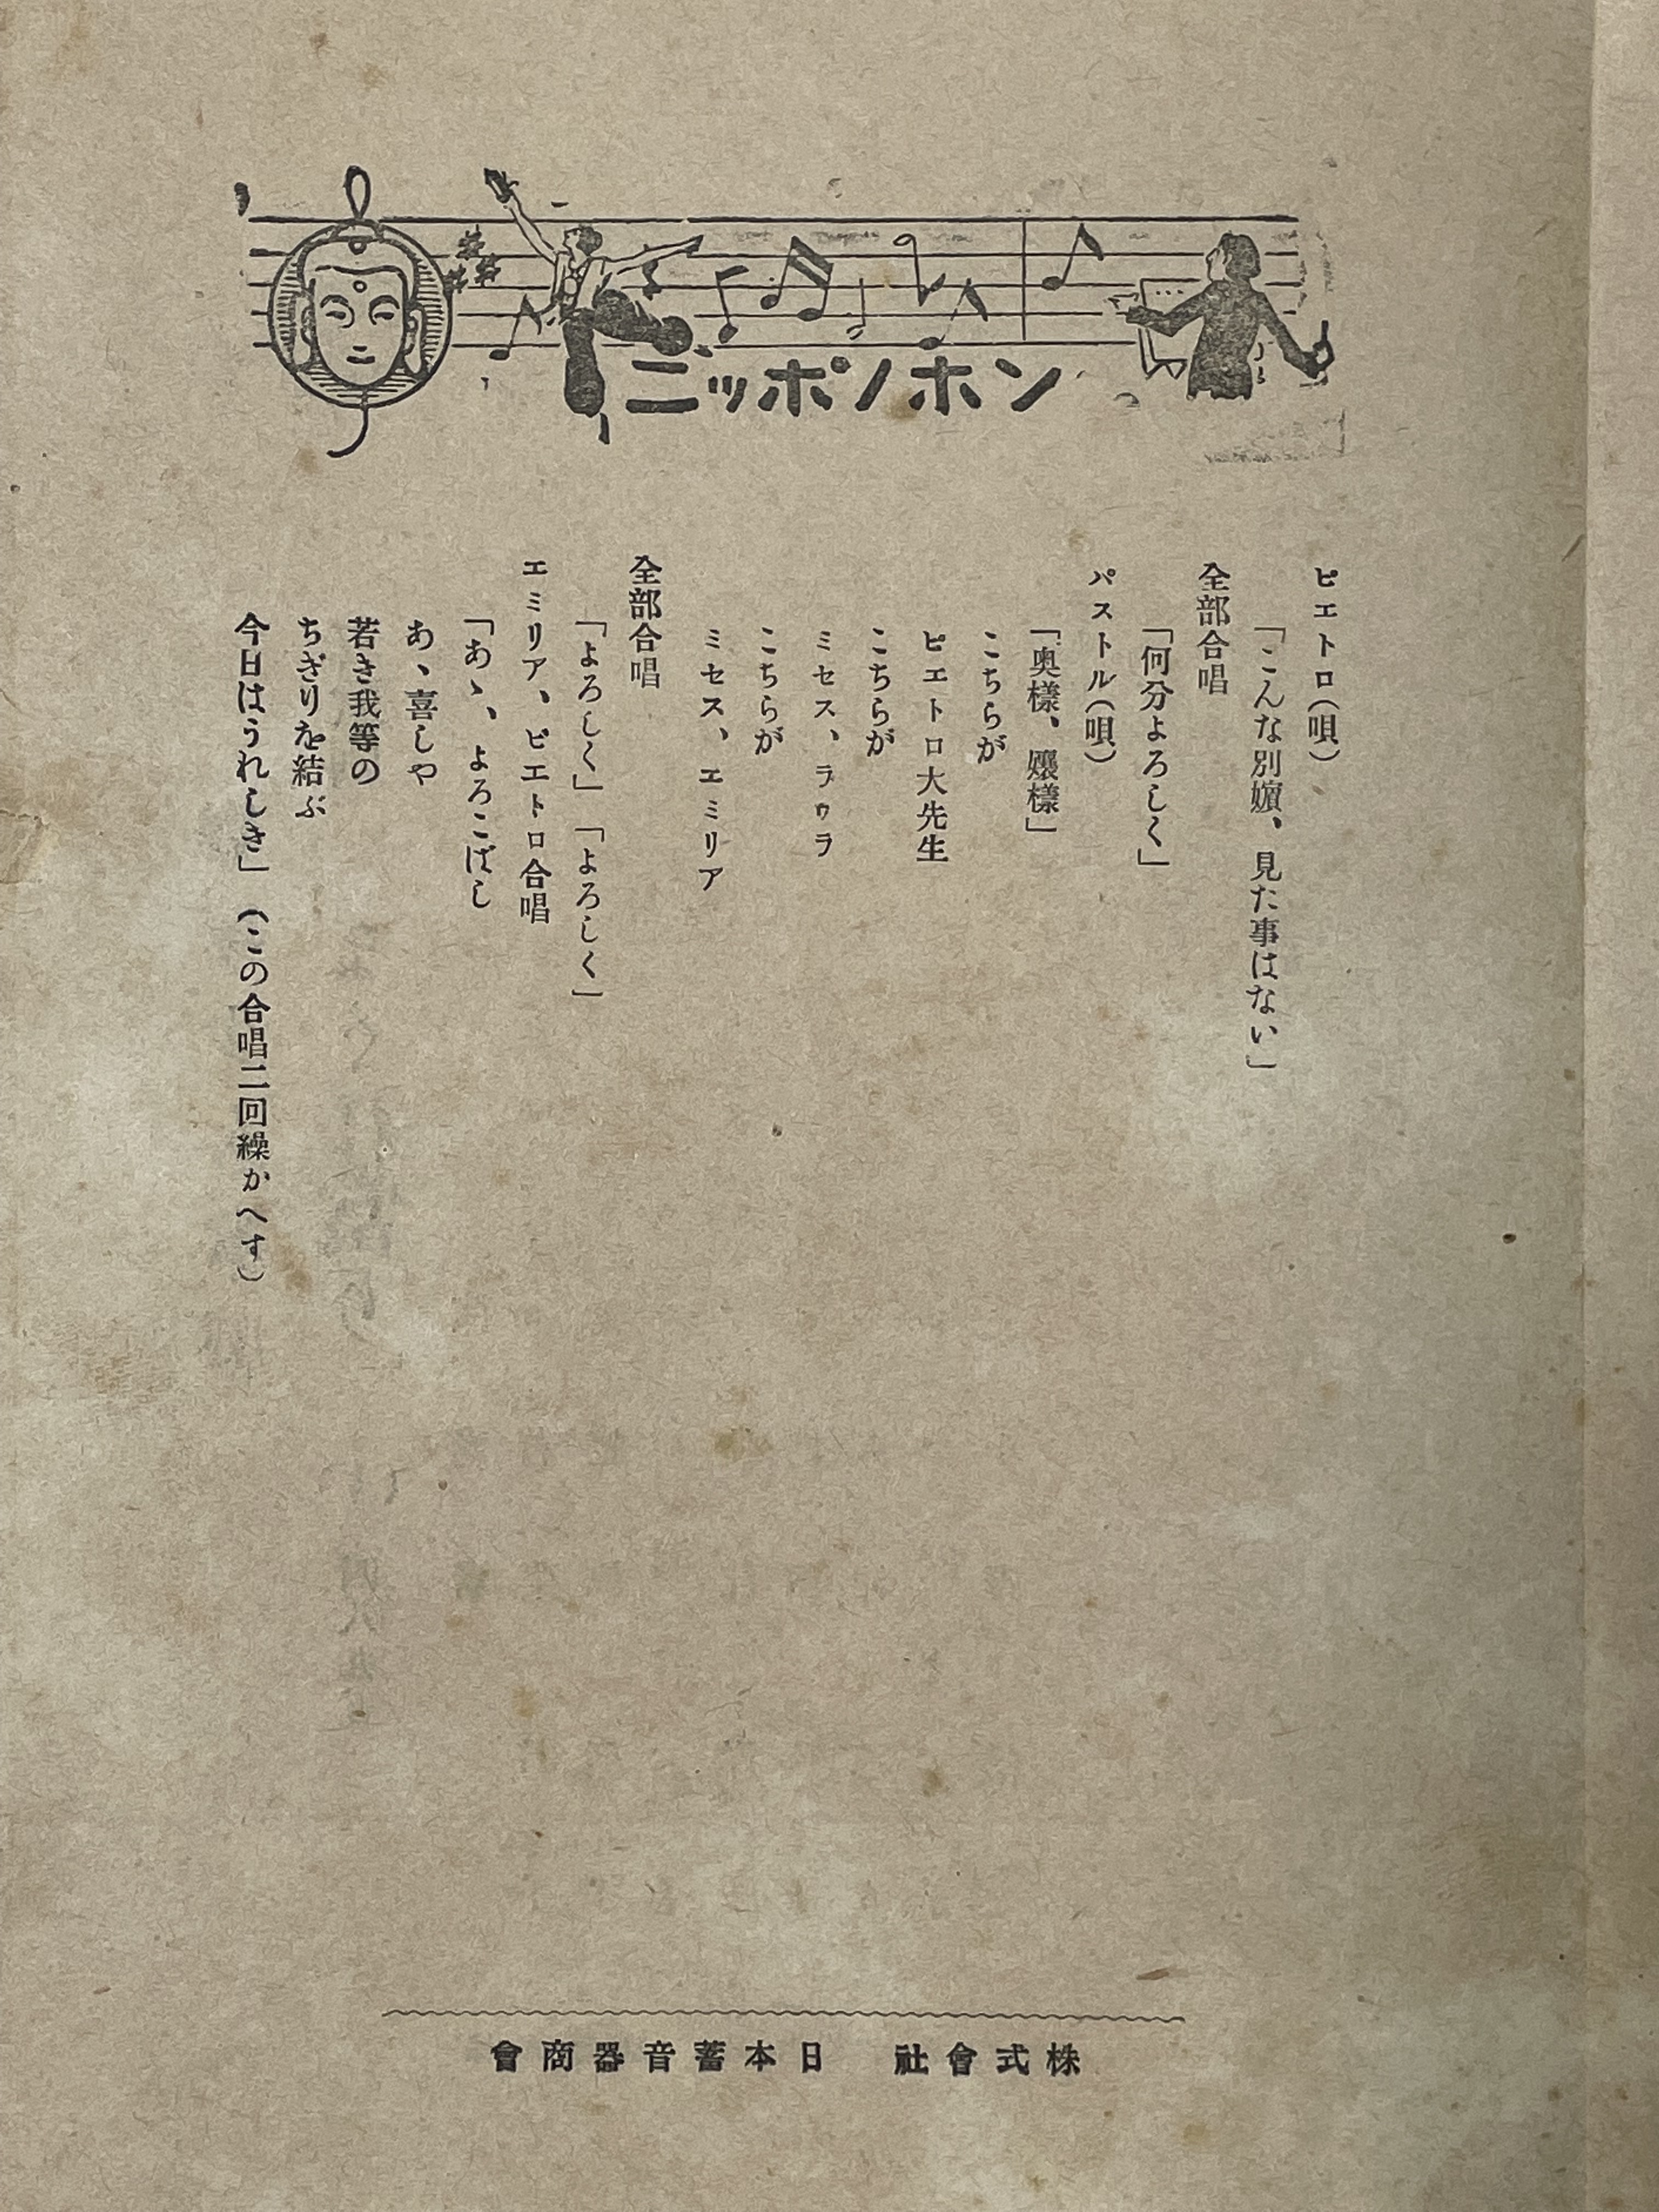 ニッポノホン
ピエトロ(唄)
「こんな別嬪、見た事はない」
全部合唱
「何分よろしく」
パストル(唄)
「奥樣、孃樣」
こちらが
ピエトロ大先生
こちらが
ミセス、ラウラ
こちらが
ミセス、エミリア
全部合唱
「よろしく」「よろしく」
エミリア、ピエトロ合唱
「あゝ、よろこばし
あゝ喜しや
若き我等の
ちぎりを結ぶ
今日はうれしき」(この合唱二回繰かへす)
株式會社 日本蓄音器商會